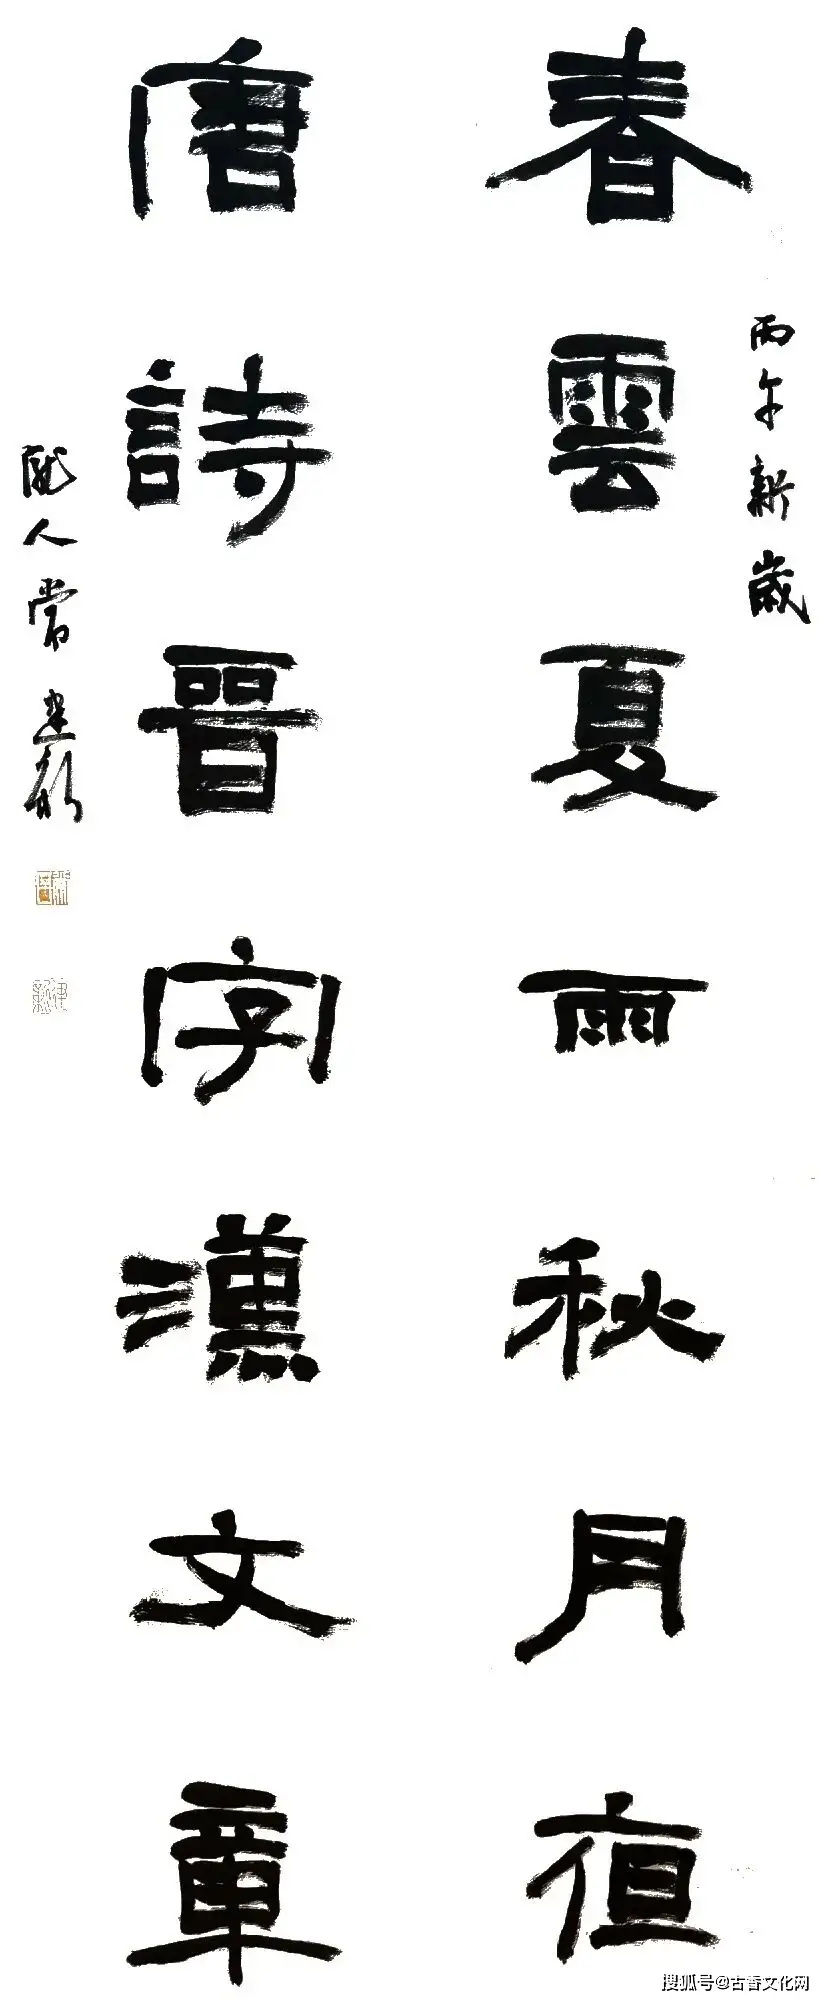 丙午新歲
春雲夏雨秋月亱
唐詩晉字漢文章
隴人常建新
搜狐号@古香文化网